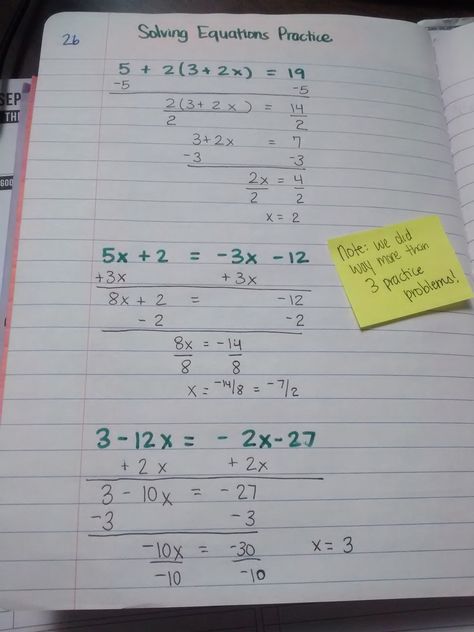 26
Solving Equations Practice
5 + 2(3+2x) = 19
-5 -5
2(3+2x) = 14
2 2
3+2x = 7
-3 -3
2x = 4
2 2
x = 2
5x + 2 = -3x - 12
+3x +3x
8x + 2 = -12
- 2 -2
8x = -14
8 8
x = -14/8 = -7/2
Note: we did
way more than
3 practice
problems!
3 - 12x = - 2x - 27
+ 2x + 2x
3 - 10x = - 27
-3 - 3
-10x = -30
-10 -10
x = 3
SEP
TH